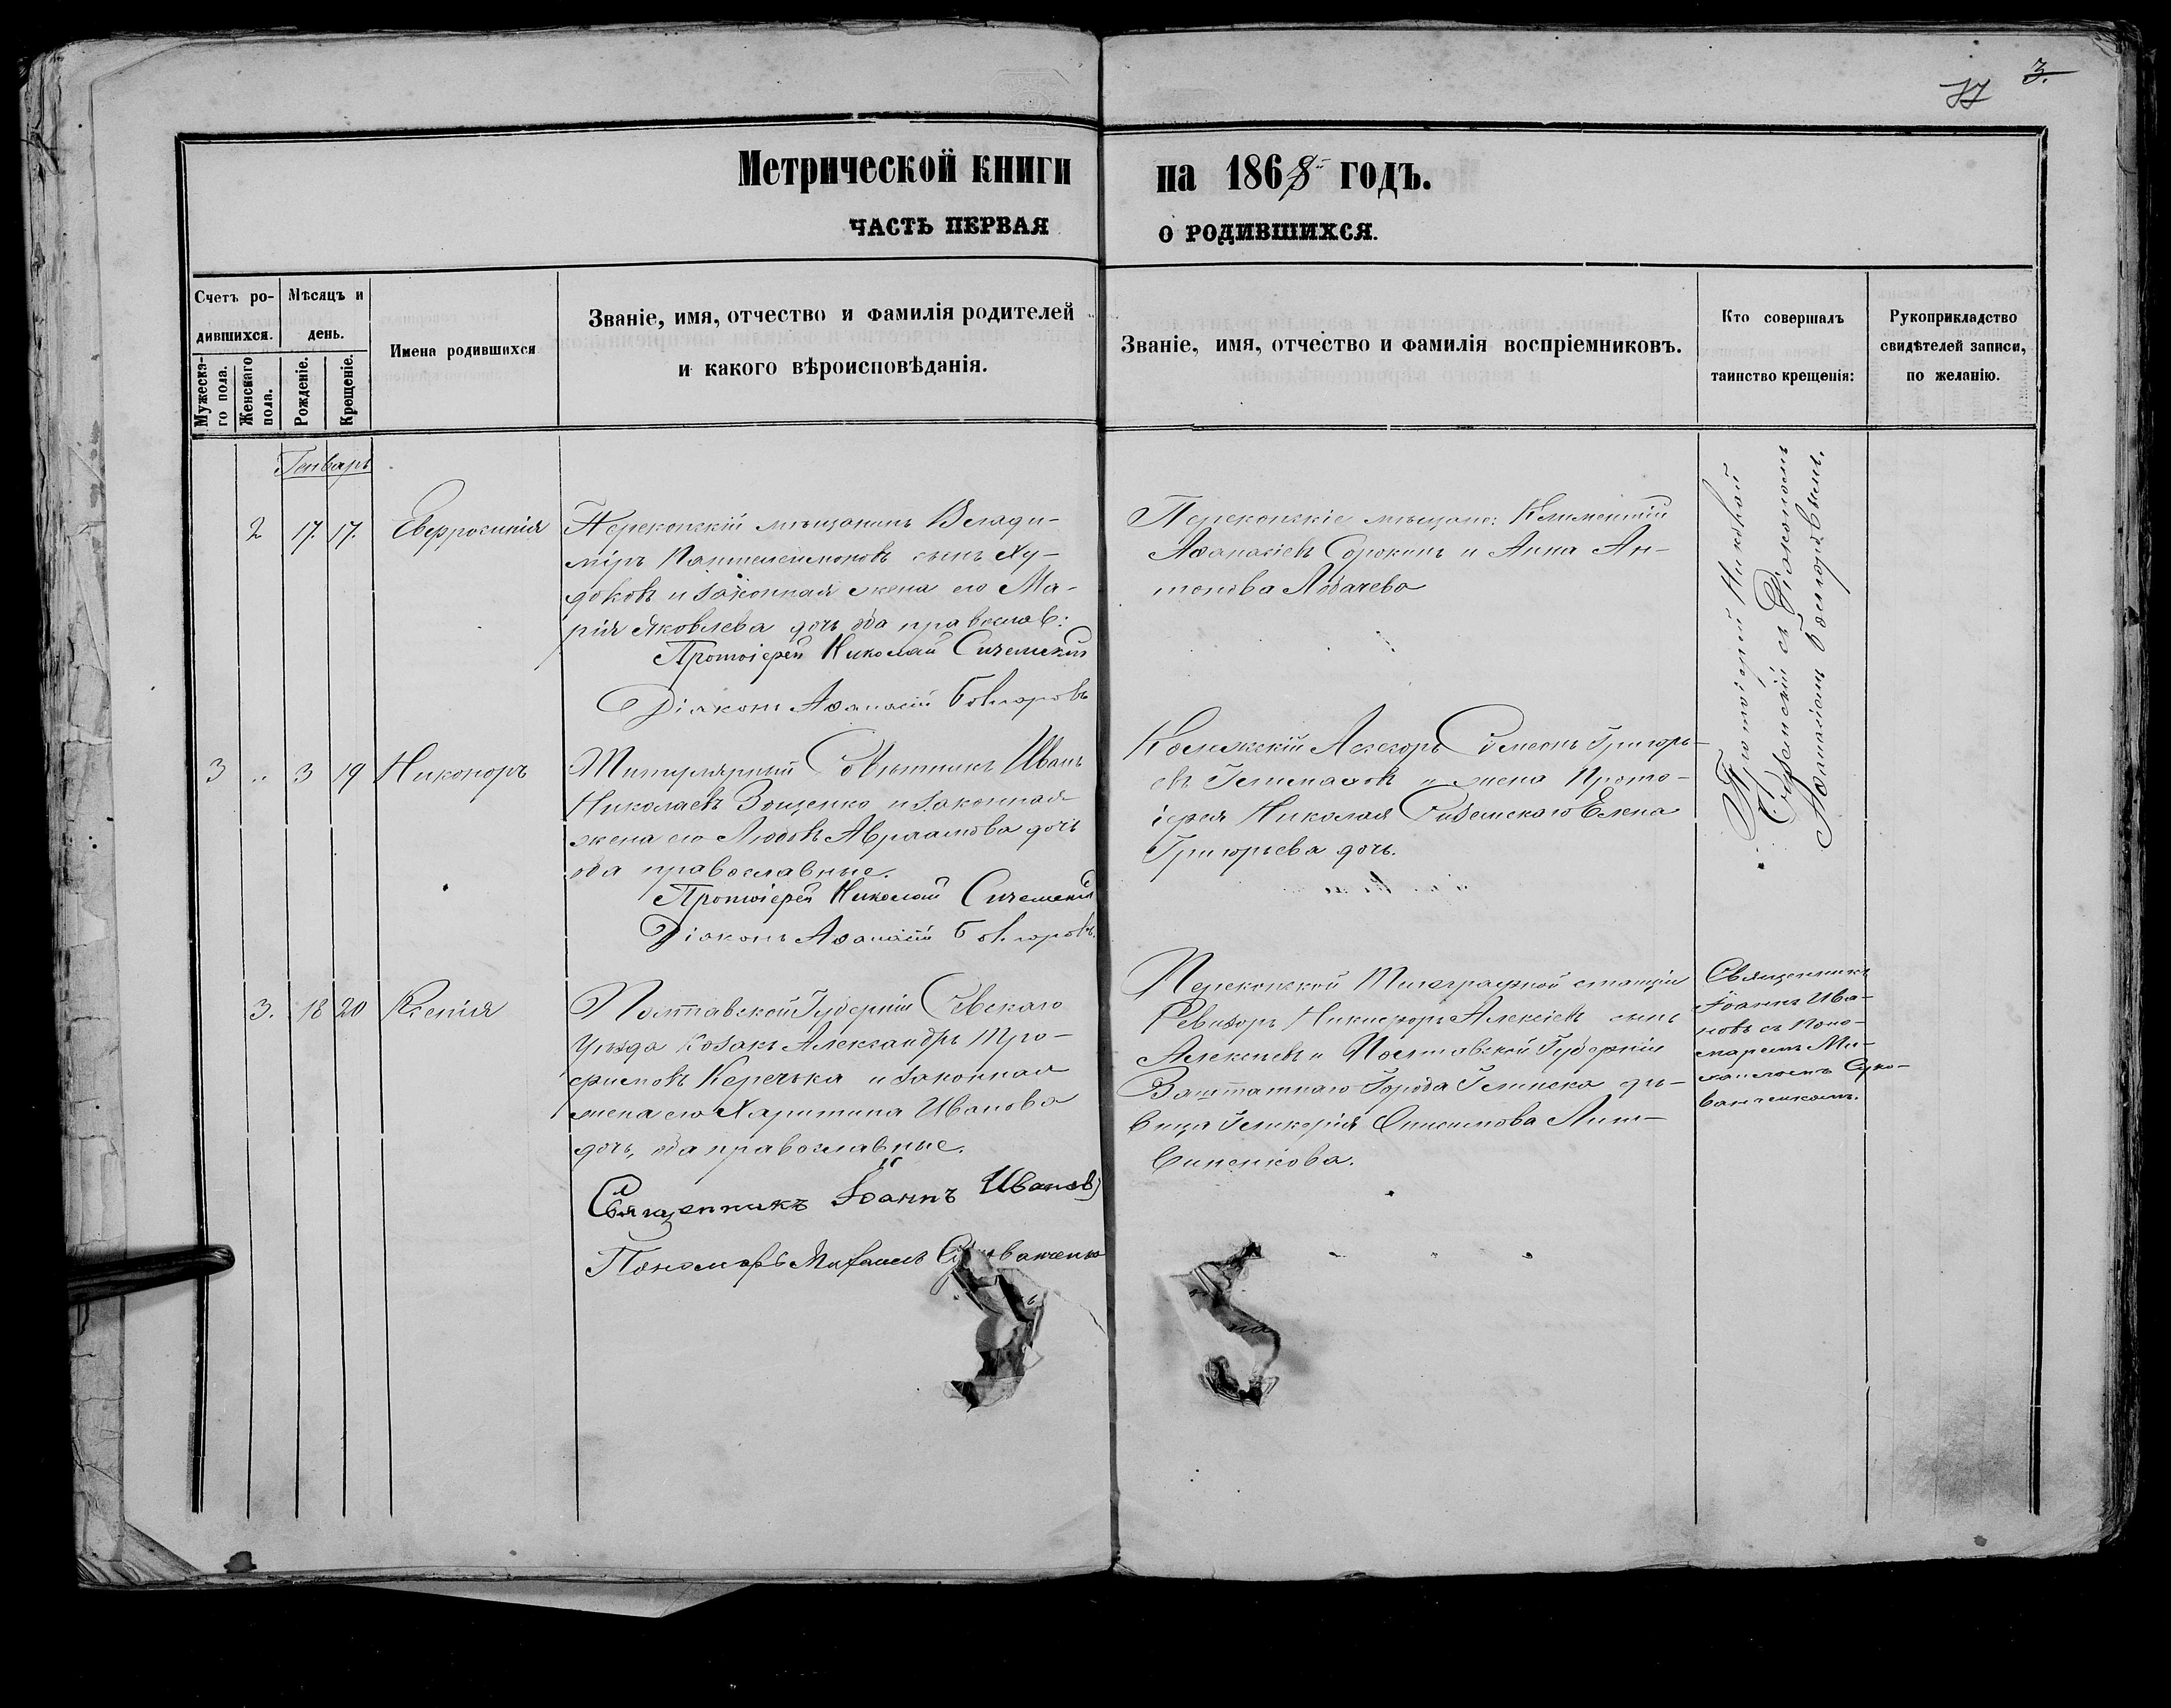 3.
77
Метрической книги на 1868 годъ.
ЧАСТЬ ПЕРВАЯ О РОДИВШИХСЯ.
Счетъ ро-
дившихся.
Мужеска-
го пола.
Женскаго
пола.
Мѣсяцъ и
день.
Рожденіе.
Крещеніе.
Имена родившихся
Званіе, имя, отчество и фамилія родителей
и какого вѣроисповѣданія.
Званіе, имя, отчество и фамилія воспріемниковъ.
Кто совершалъ
таинство крещенія:
Рукоприкладство
свидѣтелей записи,
по желанію.
Генварь
2 17. 17. Евфросинія
Перекопскій мѣщанинъ Влади-
міръ Пантелеимоновъ сынъ Ху-
доковъ и законная жена его Ма-
рія Яковлева дочь оба православ:
Протоіерей Николай
Діаконъ Аѳанасій
Перекопскіе мѣщане: Климентій
Аѳанасіевъ Сорокинъ и Анна Ан-
тонова Лобачева
Протоіерей Николай
съ Діакономъ
Аѳанасіемъ
3 " 3 19 Никоноръ
Титулярный Совѣтникъ Иванъ
Николаевъ Зощенко и законная
жена его Любовь Авраамова дочь
оба православные.
Протоіерей Николай
Діаконъ Аѳанасій
Колежскій Асесоръ Симеонъ Григорь-
евъ и жена Прото-
іерея Николая Елена
Григорьева дочь.
3. 18 20 Ксенія
Полтавской Губерніи
Уѣзда Козакъ Александръ Тро-
фимовъ Керечька и законная
жена его Харитина Иванова
дочь, оба православные.
Священникъ Іоаннъ Ивановъ
Пономарь Михаилъ
Перекопской станціи
Ревизоръ Никифоръ Алексіевъ сынъ
Алексіевъ и Полтавской Губерніи
Заштатнаго Города Глинска дѣ-
вица Гликерія Онисимова Лит-
виненкова.
Священникъ
Іоаннъ Ива-
новъ съ Поно-
маремъ Ми-
хаиломъ